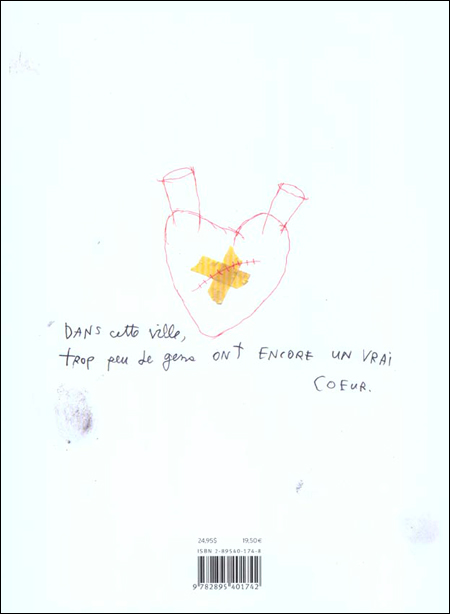 DANS cette ville,
trop peu de gens ONT ENCORE UN VRAI
COEUR.
24,95$ 19,50€
ISBN 2-89540-174-8
9 782895 401742